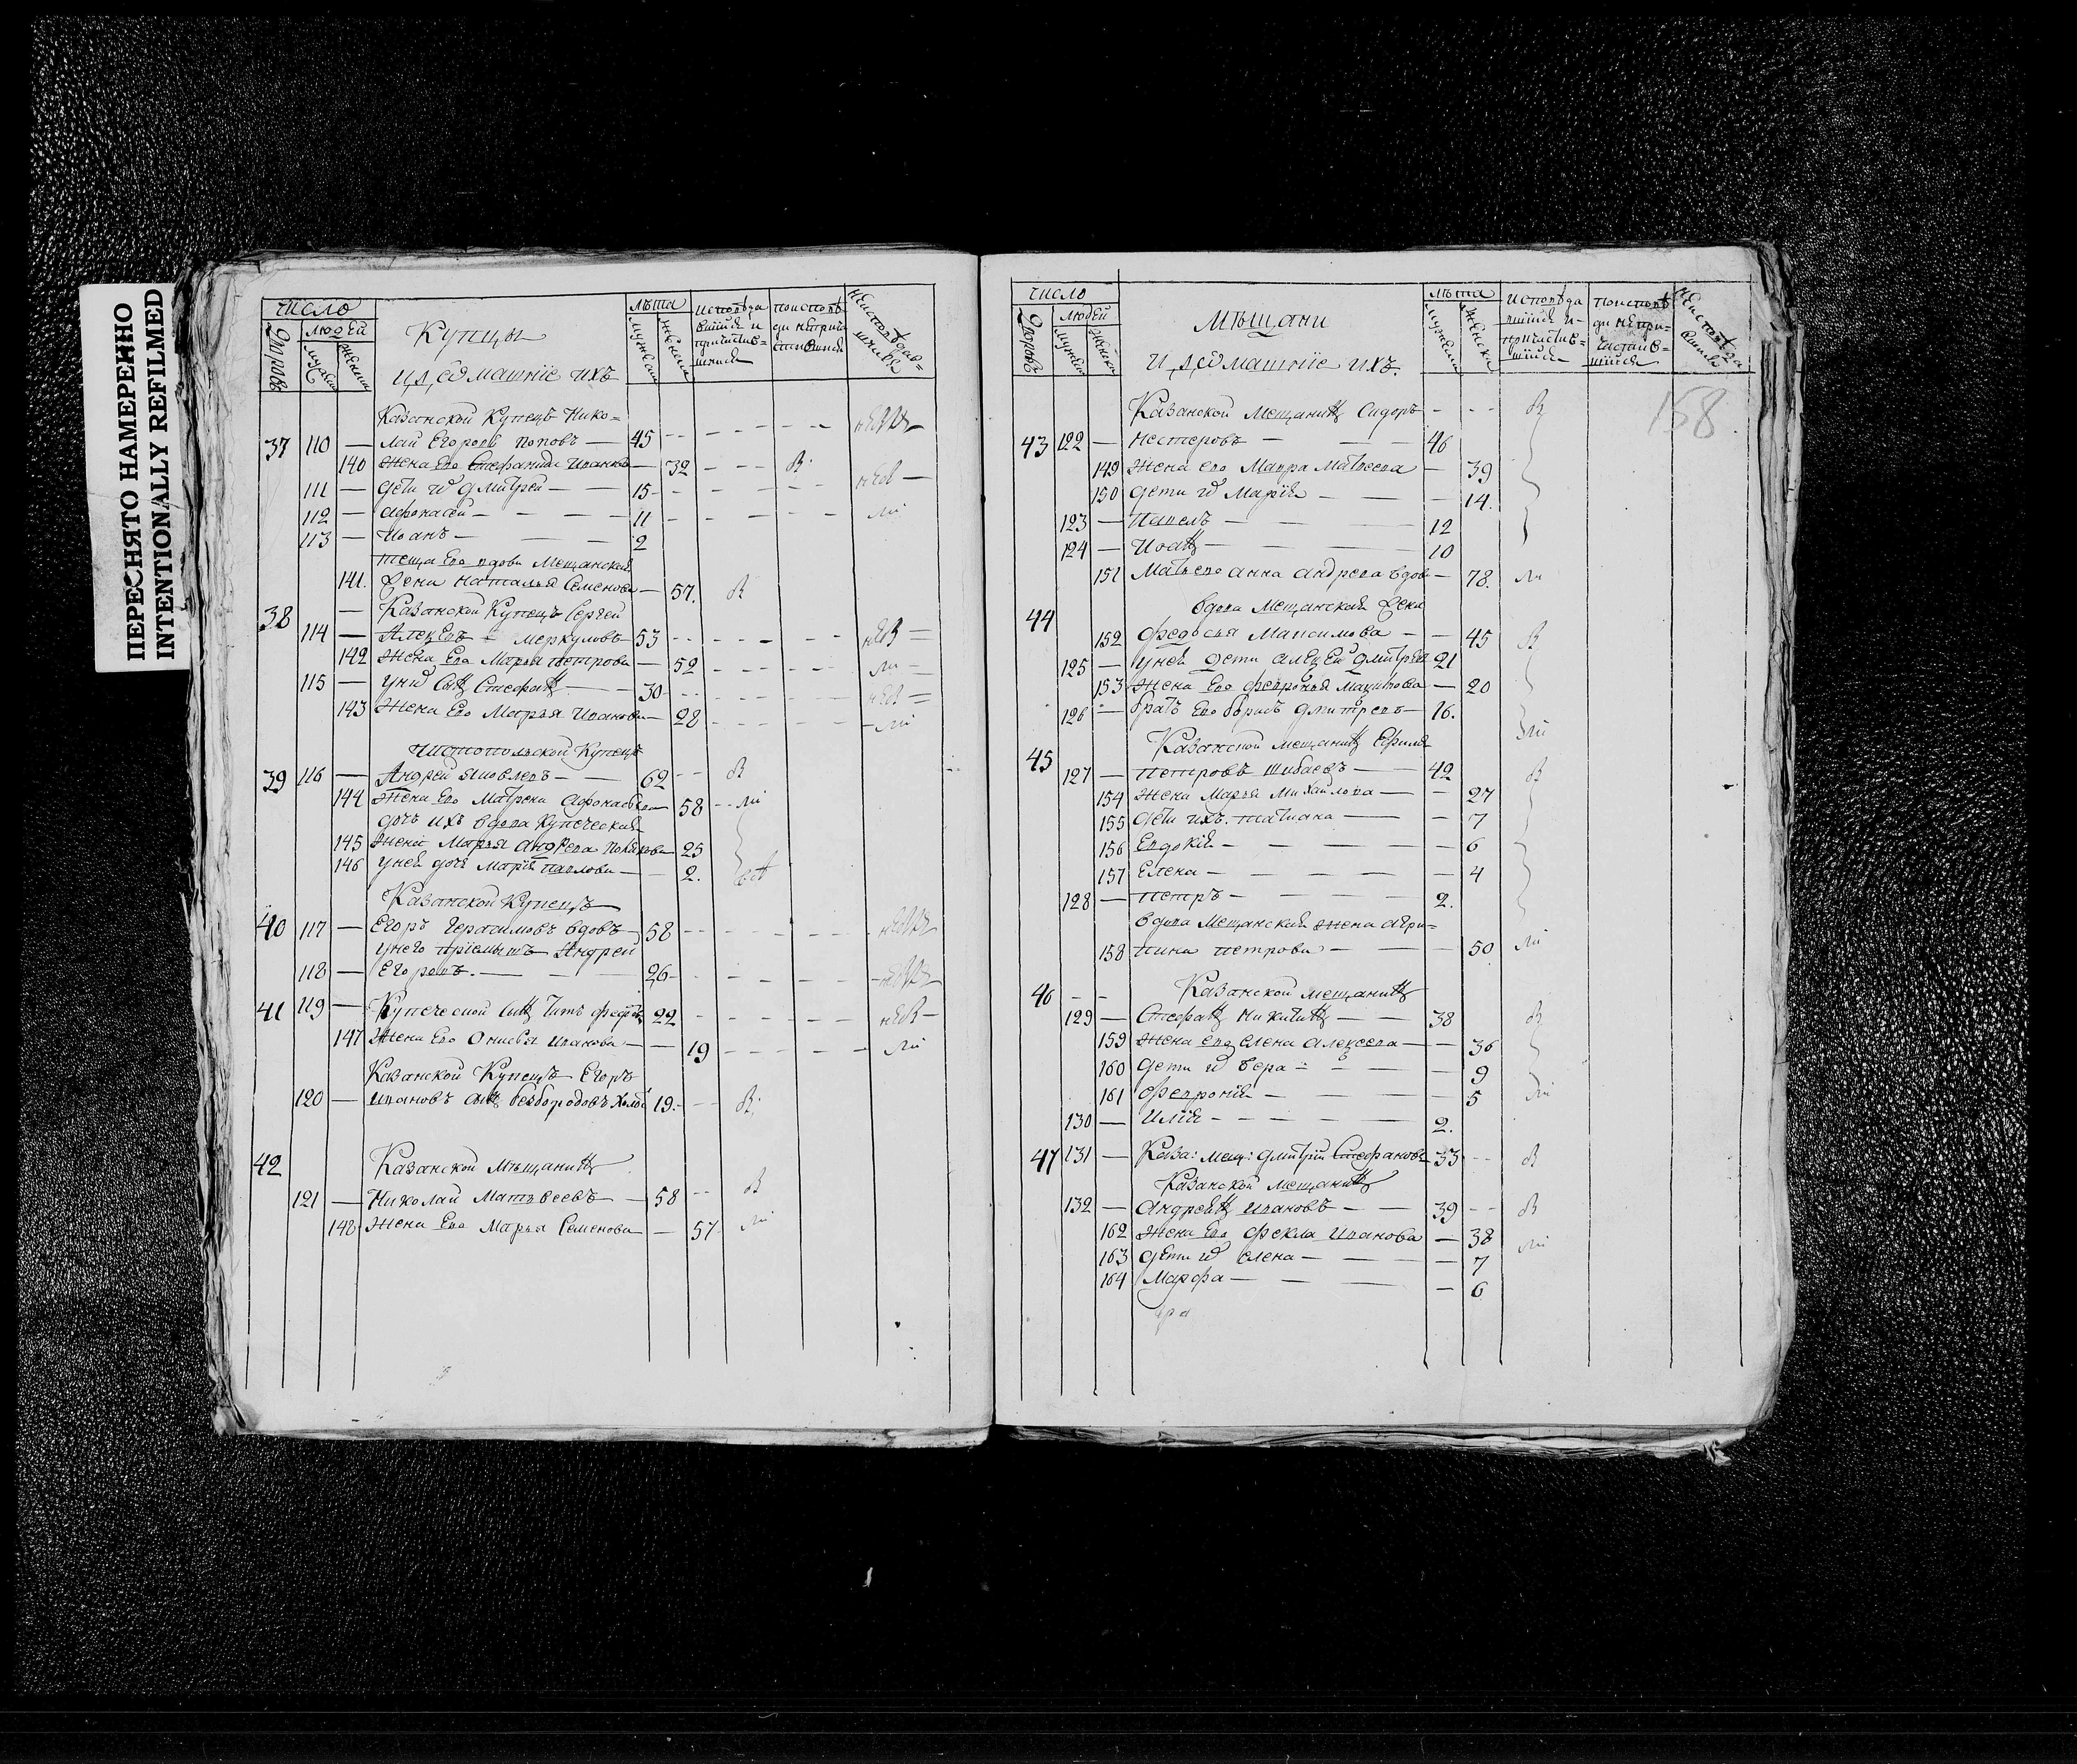 ПЕРЕСНЯТО НАМЕРЕННО
INTENTIONALLY REFILMED
число
людей
Купцы
и домашніе ихъ
лѣта
Казанской Купецъ Нико=
37 110 — лай Егоровъ Поповъ — 45
140 жена Его Стефанида Иванова — 32
111 — дети их Дмитрей — 15
112 — Афонасей — 11
113 — Иоанъ — 2
теща Его вдова Мещанская
141. Жена Наталья Семенова — 57.
38 — Казанской Купецъ Сергей
114 — Алексѣевъ Меркуловъ — 53
142 Жена Его Марья Петрова — 52
115 — у них сынъ Стефанъ — 30
143 Жена Его Марья Иванова — 28
Чистопольской Купецъ
39 116 — Андрей Яковлевъ — 62
144 Жена Его Матрена Афонасьева — 58
дочь ихъ вдова Купеческая
145 Жена Марья Андреева Полякова 25
146 у ней дочь Марія Павлова — 2.
Казанской Купецъ
40 117 — Егоръ Герасимовъ вдовъ — 58
у него пріемышъ Андрей
118 — Егоровъ. — 26
41 119 — Купеческой сынъ Титъ 22
147 Жена Его Онисья Иванова — 19
Казанской Купецъ Егоръ
120 — Ивановъ сынъ Безбородовъ 19.
42 Казанской Мѣщанинъ
121 — Николай Матвеевъ — 58
148 Жена Его Марья Семенова — 57
число
людей
Мѣщани
и домашніе ихъ.
лѣта
158.
Казанской Мещанинъ Сидоръ
43 122 — Нестеровъ — 46
149 Жена его Мавра Матвеева — 39
150 Дети их Марія — 14.
123 — Павелъ — 12
124 — Иоанъ — 10
151 Мать его Анна Андреева вдова — 78.
44 вдова Мещанская Жена
152 Федосья Максимова — 45
125 — у ней дети Алексей Дмитріев 21
153 Жена Его Февронья — 20
126 — братъ Его Борисъ Дмитревъ — 16.
45 Казанской мещанинъ
127 — Петровъ Шибаевъ — 42
154 Жена Марья Михайлова — 27
155 Дети ихъ. Татиана — 7
156 Евдокія — 6
157 Елена — 4
128 — Петръ — 2.
вдова Мещанская Жена Агри=
158 пина Петрова — 50
46 Казанской мещанинъ
129 — Стефанъ Никитинъ — 38
159 Жена его Елена Алексеева — 36
160 Дети их Вера — 9
161 Феврония — 5
130 — Илія — 2.
47 131 — Каза: мещ: Дмитрій Стефановъ 33
Казанской мещанинъ
132 — Андреянъ Ивановъ — 39
162 Жена Его Фекла Иванова — 38
163 Дети их Елена — 7
164 Марфа — 6